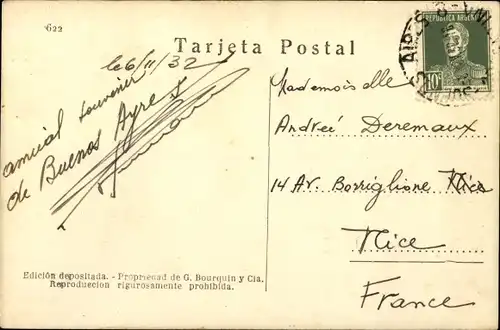 622
Tarjeta Postal
le 6/11/32
amical souvenir
de Buenos Ayres
Edición depositada. - Propriedad de G. Bourquin y Cia.
Reproduccion rigurosamente prohibida.
REPUBLICA ARGENTINA
10c
AIRES
Mademoiselle
Andreé Deremaux
14 AV. Borriglione Nice
Nice
France